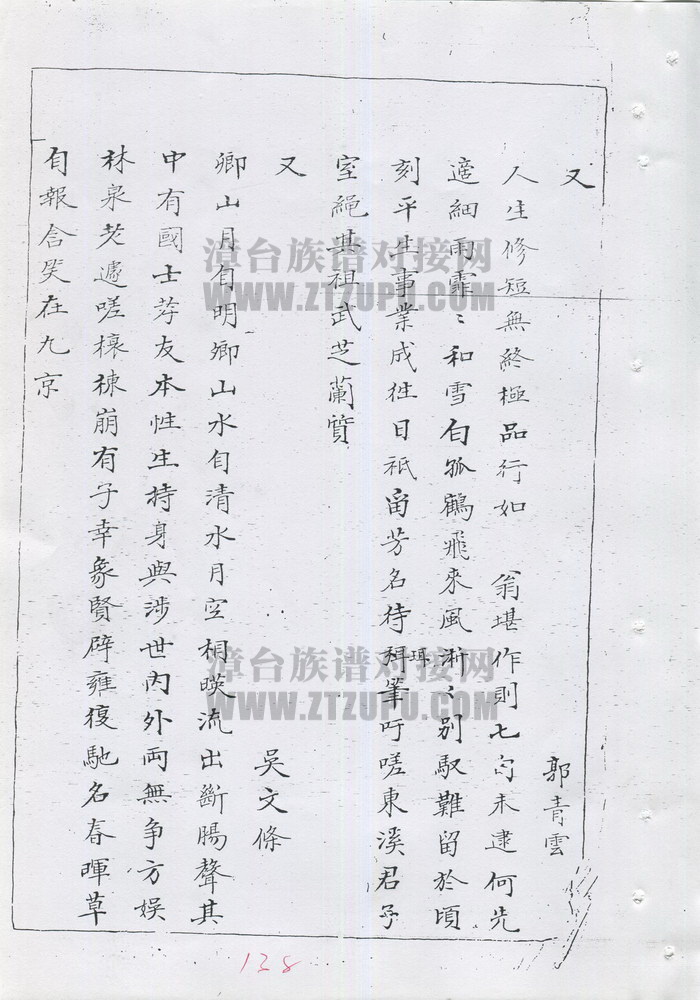 又
郭青雲
人生修短無終極品行如 翁堪作則七旬未逮何先
適細雨霏〻和雪白孤鶴飛來風淅〻別馭難留於頃
刻平生事業成往日祇留芳名待珥筆吁嗟東溪君子
室繩其祖武芝蘭質
又
吳文條
鄉山月自明鄉山水自清水月空相暎流出斷腸聲其
中有國士孝友本性生持身與涉世內外両無争方娛
林泉老遽嗟榱棟崩有子幸象賢辟雍復馳名春暉草
自報含笑在九京
138
漳台族谱对接网
WWW.ZTZUPU.COM
漳台族谱对接网
WWW.ZTZUPU.COM